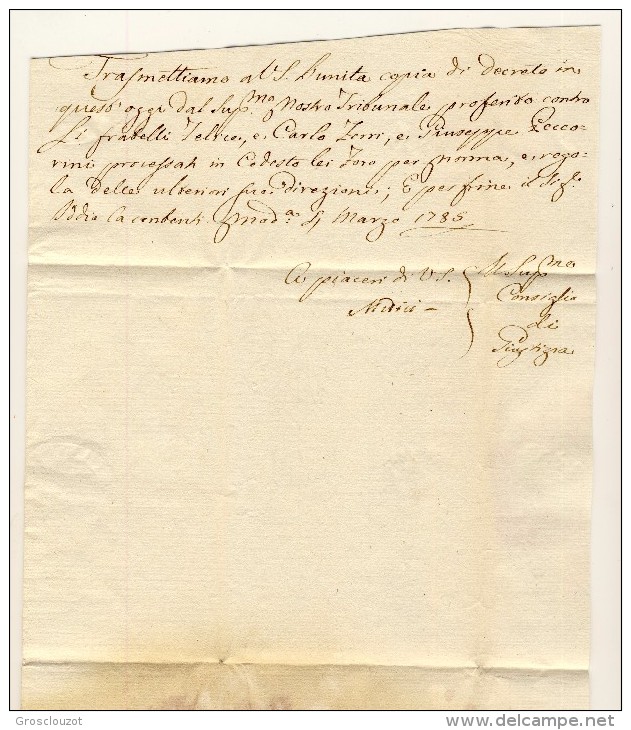 Trasmettiamo a V.S. Unita copia di Decreto in
quest'oggi dal Sup.mo Nostro Tribunale proferito contro
Li fratelli Felice, e Carlo Zorri, e Giuseppe Zecco-
rini processati in Codesto lei Foro per norma, e rego-
la delle ulteriori sue direzioni; E per fine il Sig.r
Iddio la contenti. Mod.a 4 Marzo 1785
A piaceri di V.S.
Il Sup.mo
Consiglio
di
Giustizia
Grosclouzot
www.delcampe.net